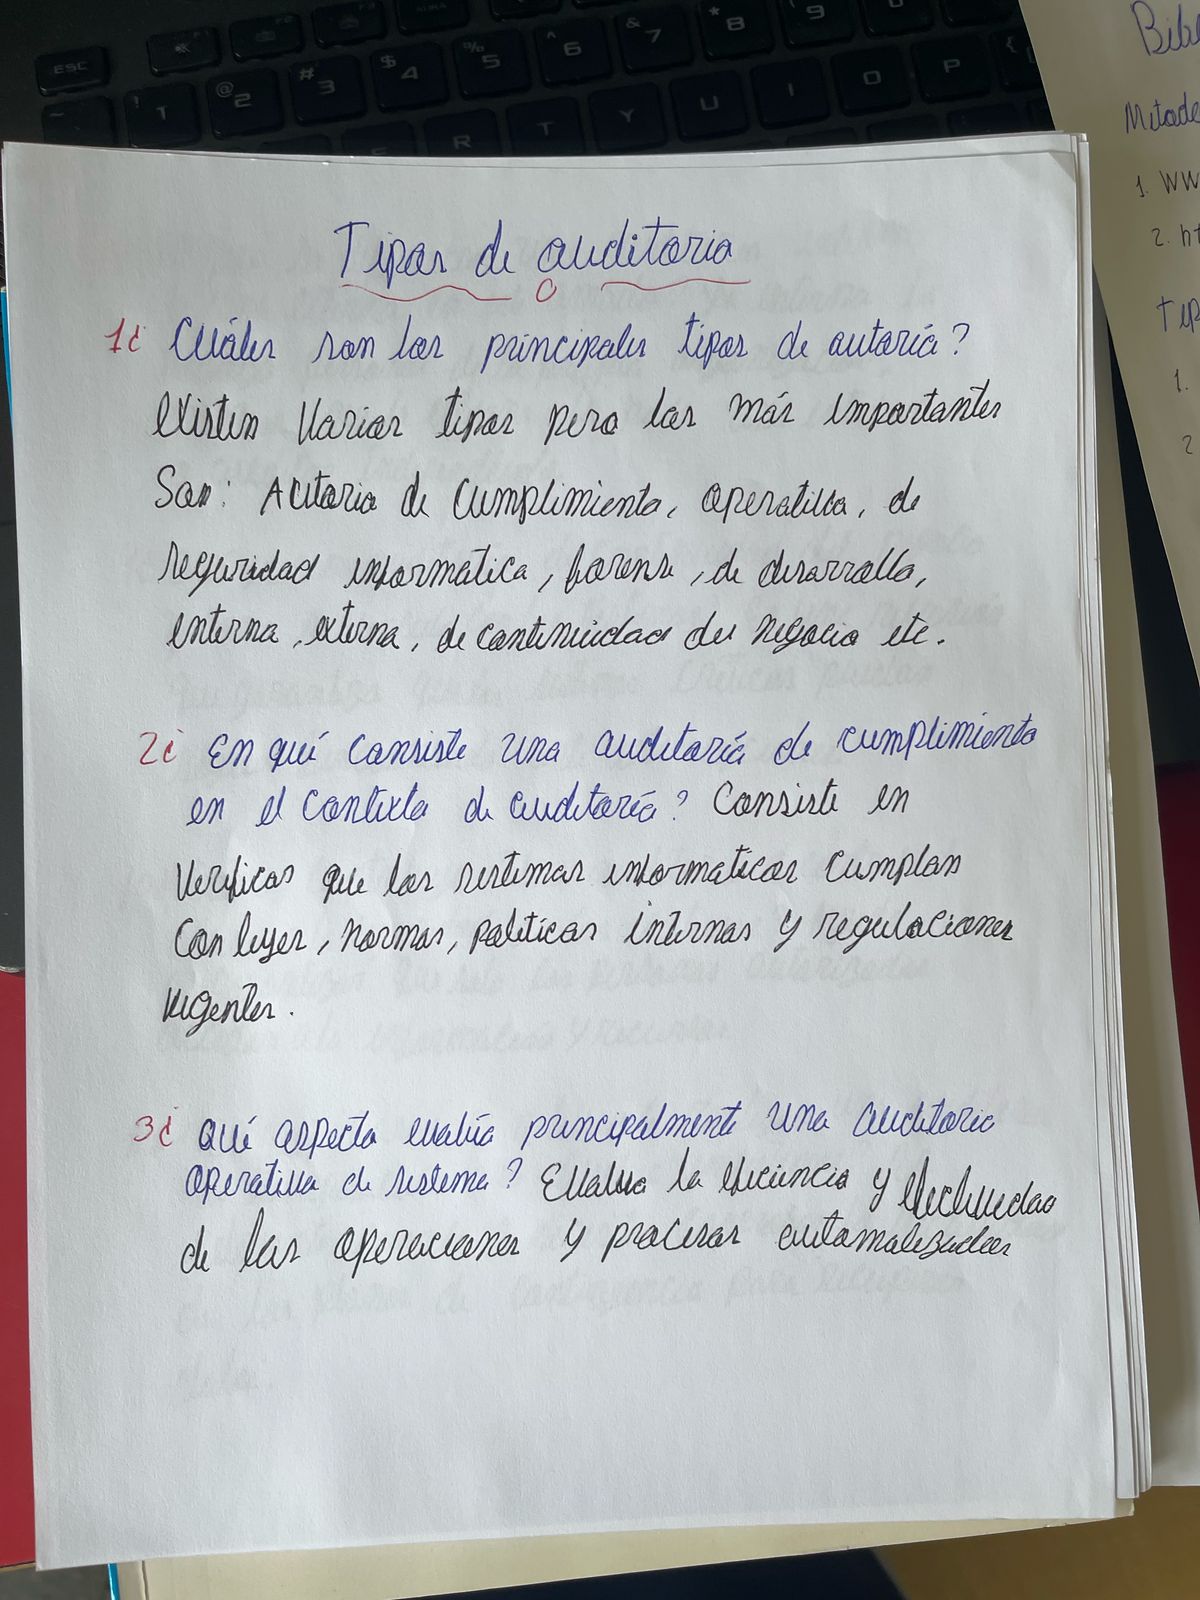 Tipos de auditoria
1¿ Cuáles son los principales tipos de autoría?
existen varias tipos pero los más importantes
Son: Acitoria de cumplimiento, operativa, de
seguridad informática, forense, de desarrollo,
interna, externa, de continuidad del negocio etc.
2¿ En qué consiste una auditoría de cumplimiento
en el contexto de auditoría? Consiste en
Verificas que los sistemas informaticos cumplan
Con leyes, normas, políticas internas y regulaciones
vigentes.
3¿ Qué aspecto evalúa principalmente una auditoria
operativa de sistema? Evalua la eficiencia y efectividad
de las operaciones y procesos automatizados
Mitade
1. WW
2. ht
Tip
1.
2
ESC
! 1
@ 2
# 3
$ 4
% 5
^ 6
& 7
* 8
( 9
R T Y U I O P {